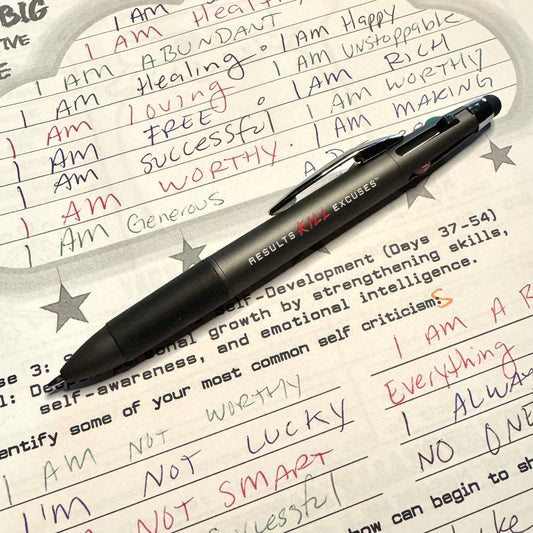 BIG
TIVE
E
I AM
I AM Healthy
I AM ABUNDANT
I AM Healing . I AM Happy
I AM loving I AM unstoppable
I AM FREE . I AM RICH
I AM SUCCESSFUL I AM WORTHY
I AM WORTHY . I AM MAKING
I AM Generous
RESULTS KILL EXCUSES™
se 3: Self-Development (Days 37-54)
l: personal growth by strengthening skills,
self-awareness, and emotional intelligence.
entify some of your most common self criticisms
I AM NOT WORTHY
I'M NOT LUCKY
NOT SMART
Successful
I AM A
Everything
I ALWA
NO ONE
how can begin to sh